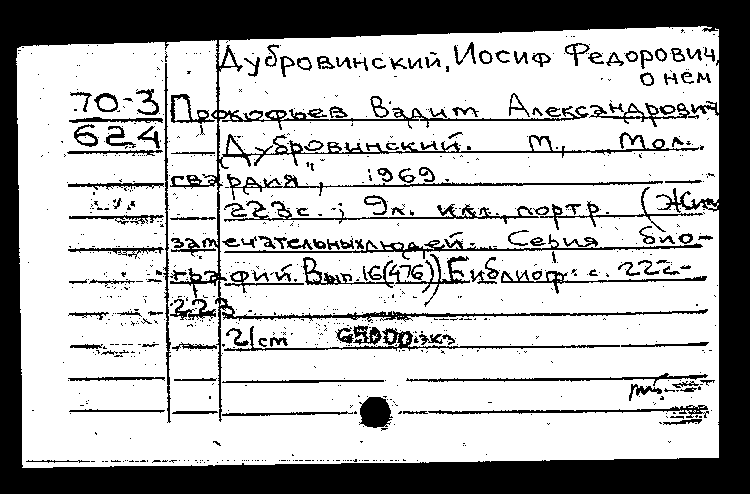 Дубровинский, Иосиф Федорович,
о нем
70-3
624
Прокофьев, Вадим Александрович
Дубровинский. М., "Мол.
гвардия", 1969.
223 с.; 9 л. илл., портр. (Жизнь
замечательных людей. Серия био-
графий. Вып. 16(476)). Библиогр.: с. 222-
223
21 cm 65000 экз